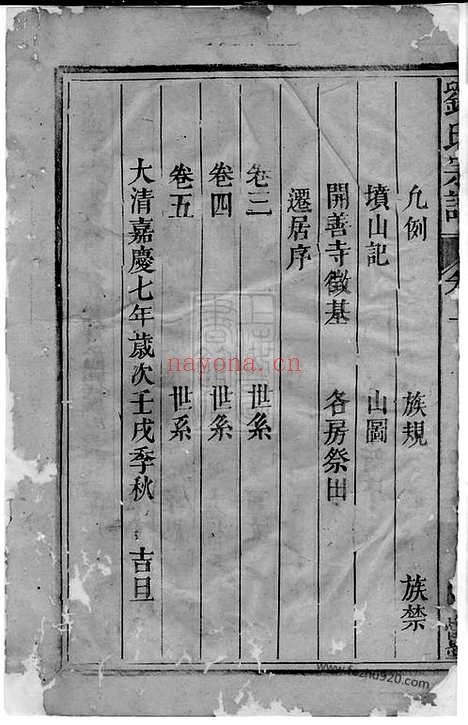 劉氏宗譜 卷一
凡例 族規 族禁
墳山記 山圖
開善寺徵基 各房祭田
遷居序
卷三 世系
卷四 世系
卷五 世系
大清嘉慶七年歲次壬戌季秋 吉旦
nayona.cn